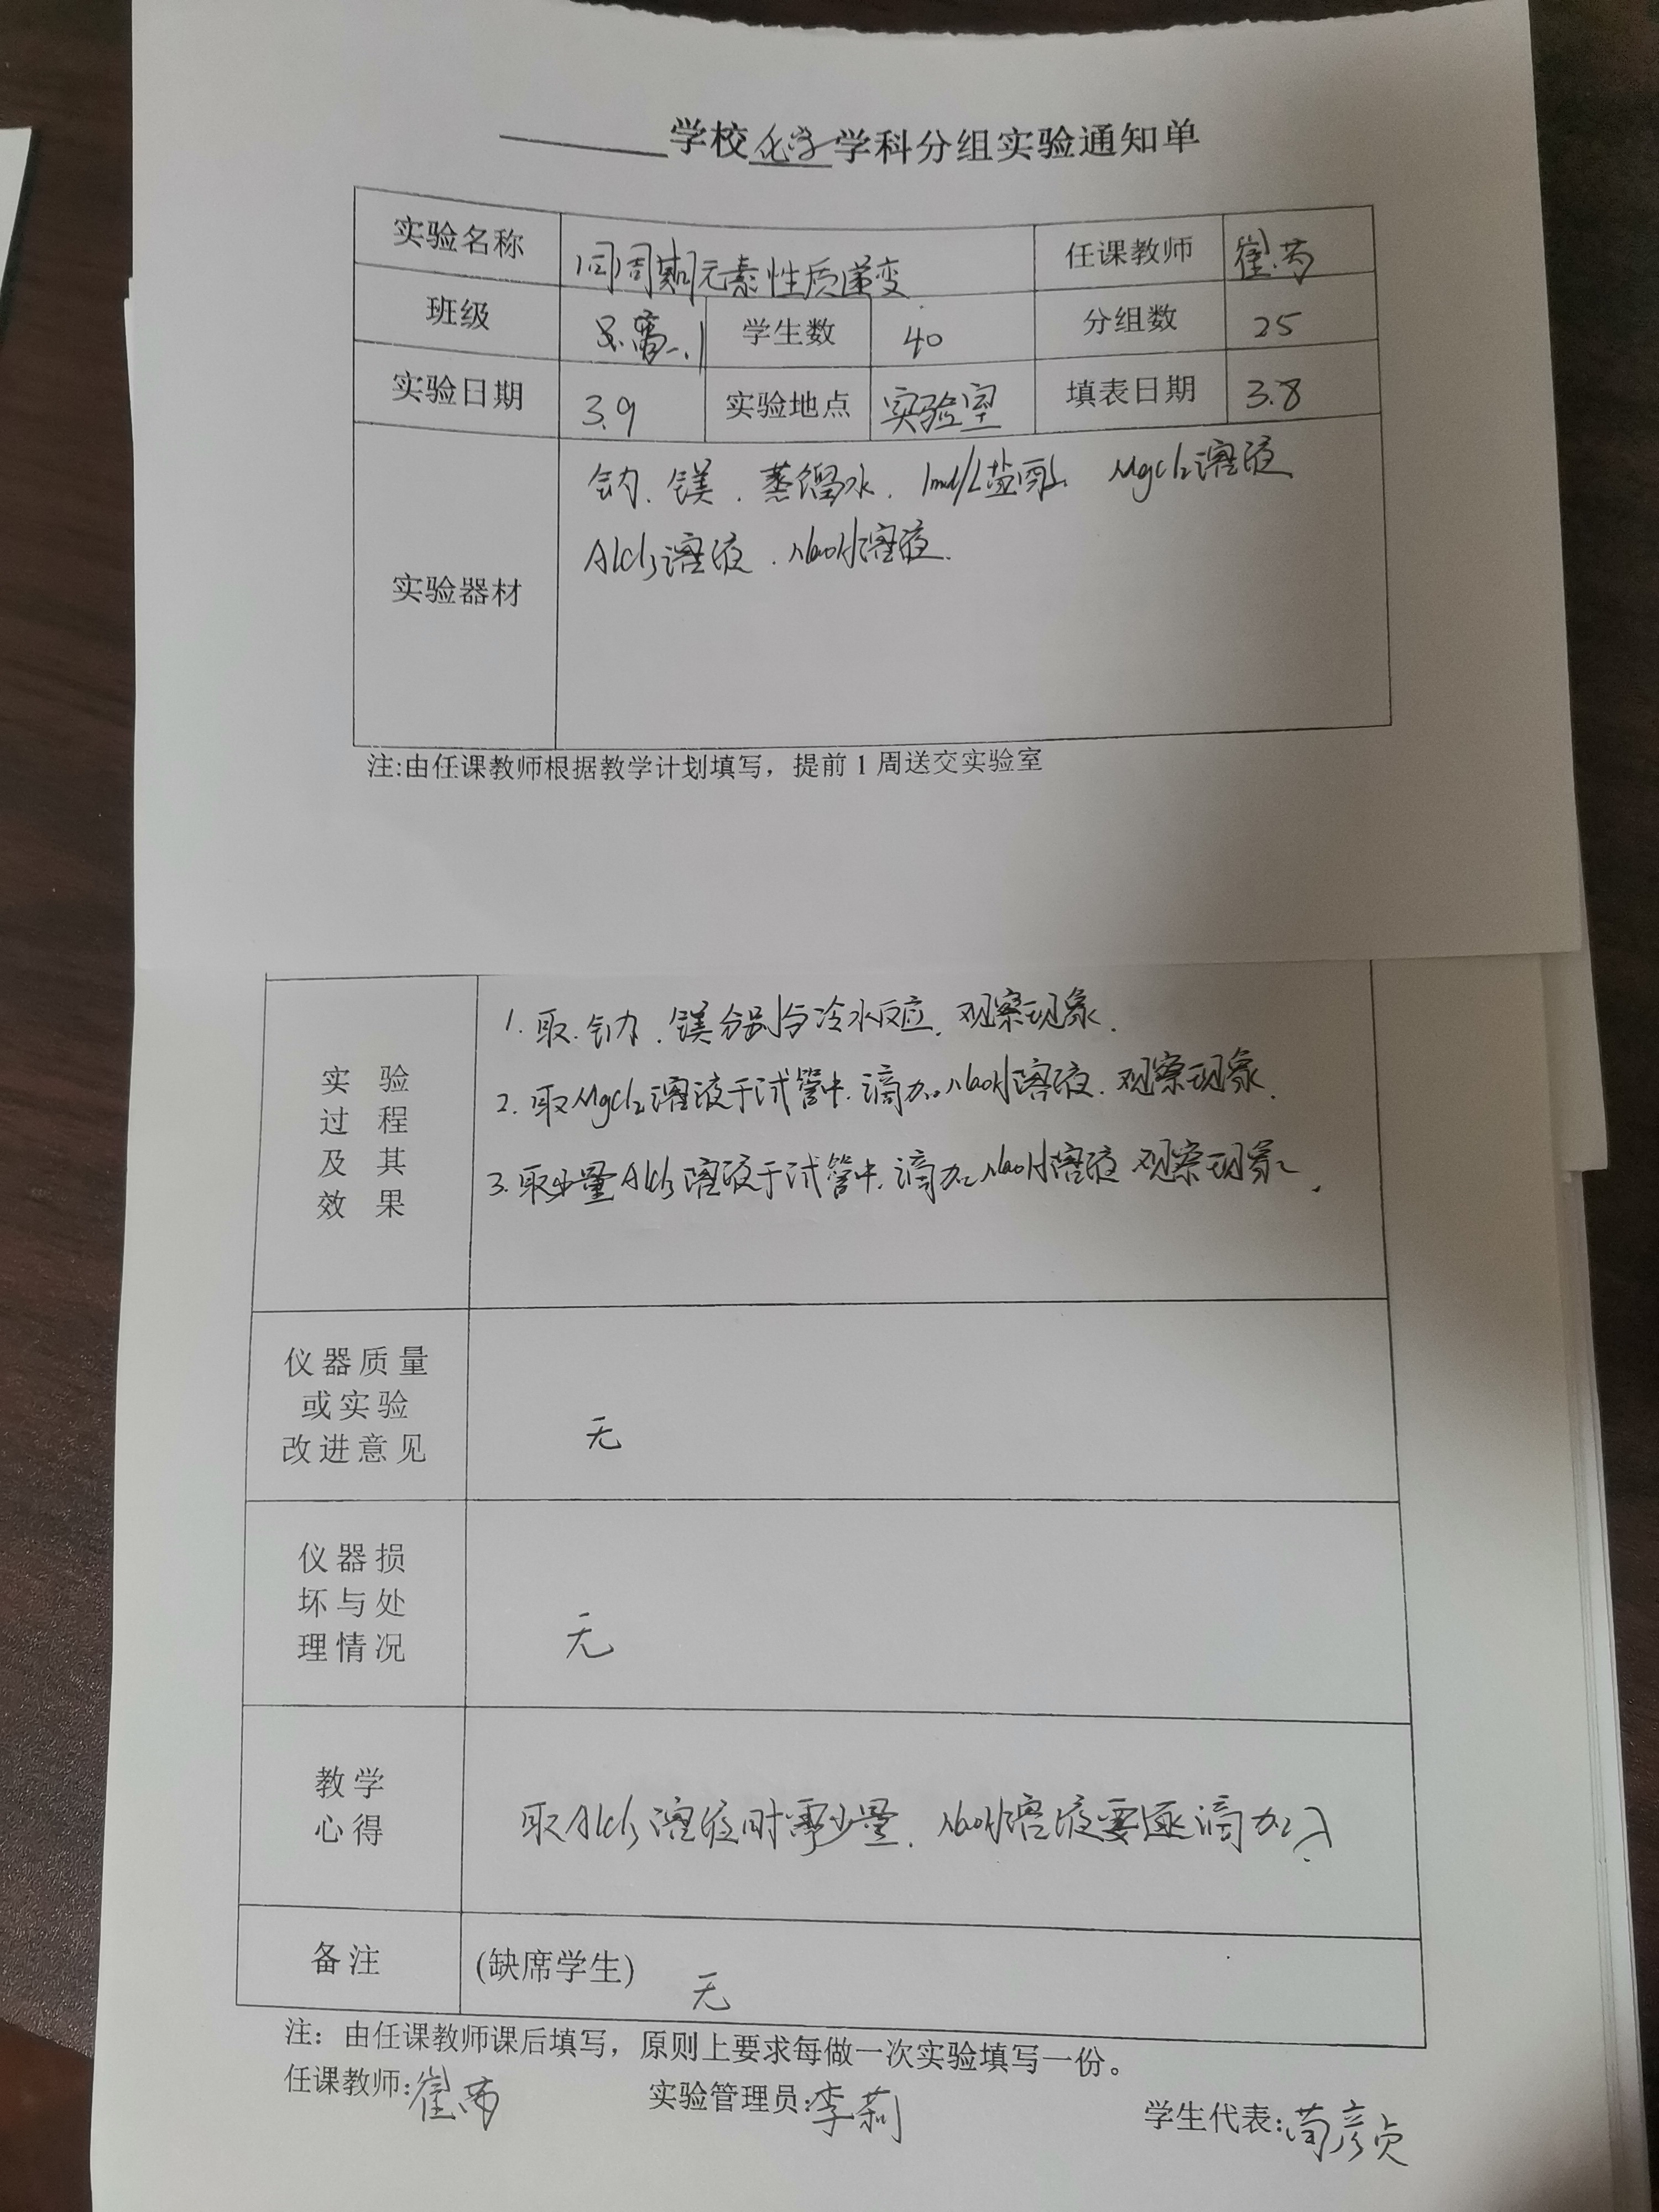 学校化学学科分组实验通知单
实验名称 同周期元素性质递变 任课教师 崔芮
班级 高一.1 学生数 40 分组数 25
实验日期 3.9 实验地点 实验室 填表日期 3.8
实验器材
钠、镁、蒸馏水、1mol/L盐酸、MgCl2溶液
AlCl3溶液、NaOH溶液.
注:由任课教师根据教学计划填写，提前1周送交实验室
实验
过程
及其
效果
1.取钠、镁分别与冷水反应,观察现象.
2.取MgCl2溶液于试管中,滴加NaOH溶液.观察现象.
3.取少量AlCl3溶液于试管中,滴加NaOH溶液 观察现象.
仪器质量
或实验
改进意见
无
仪器损
坏与处
理情况
无
教学
心得
取AlCl3溶液时需少量,NaOH溶液要逐滴加入.
备注 (缺席学生) 无
注：由任课教师课后填写，原则上要求每做一次实验填写一份。
任课教师:崔芮 实验管理员:李莉 学生代表:苟彦贞